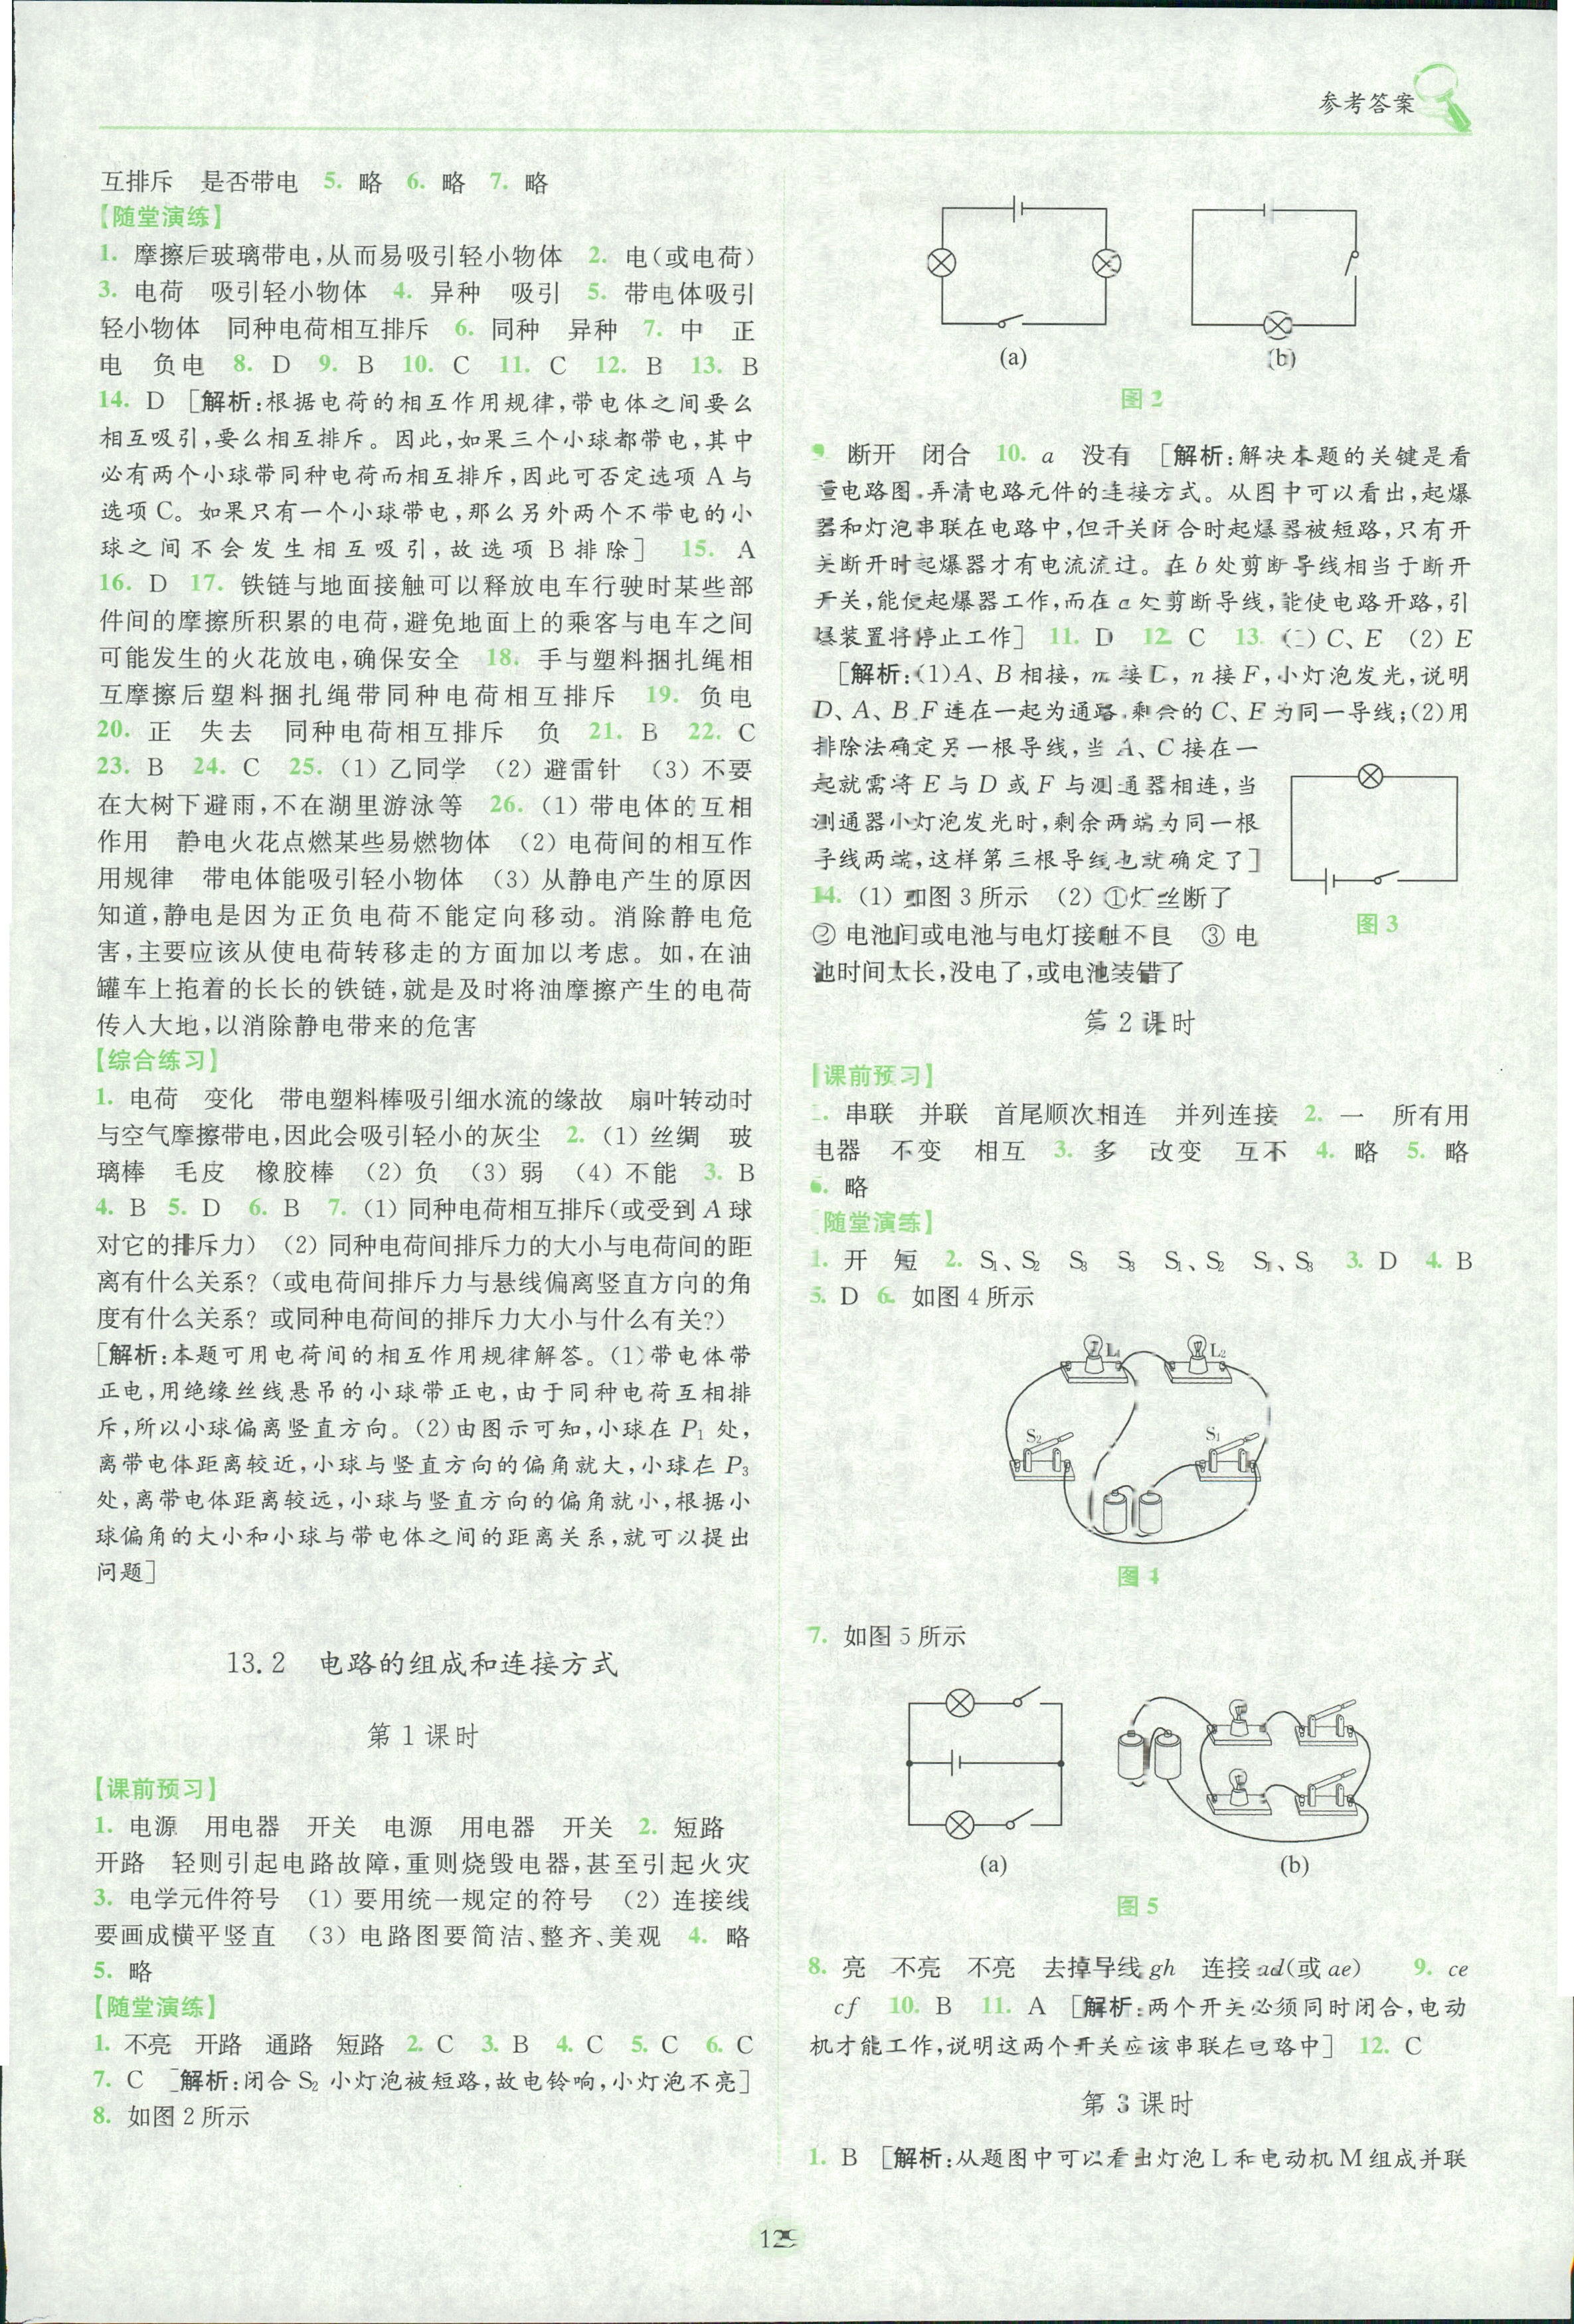 参考答案
互排斥 是否带电 5. 略 6. 略 7. 略
【随堂演练】
1. 摩擦后玻璃带电,从而易吸引轻小物体 2. 电(或电荷)
3. 电荷 吸引轻小物体 4. 异种 吸引 5. 带电体吸引
轻小物体 同种电荷相互排斥 6. 同种 异种 7. 中 正
电 负电 8. D 9. B 10. C 11. C 12. B 13. B
14. D [解析:根据电荷的相互作用规律,带电体之间要么
相互吸引,要么相互排斥。因此,如果三个小球都带电,其中
必有两个小球带同种电荷而相互排斥,因此可否定选项 A 与
选项 C。如果只有一个小球带电,那么另外两个不带电的小
球之间不会发生相互吸引,故选项 B 排除] 15. A
16. D 17. 铁链与地面接触可以释放电车行驶时某些部
件间的摩擦所积累的电荷,避免地面上的乘客与电车之间
可能发生的火花放电,确保安全 18. 手与塑料捆扎绳相
互摩擦后塑料捆扎绳带同种电荷相互排斥 19. 负电
20. 正 失去 同种电荷相互排斥 负 21. B 22. C
23. B 24. C 25. (1) 乙同学 (2) 避雷针 (3) 不要
在大树下避雨,不在湖里游泳等 26. (1) 带电体的互相
作用 静电火花点燃某些易燃物体 (2) 电荷间的相互作
用规律 带电体能吸引轻小物体 (3) 从静电产生的原因
知道,静电是因为正负电荷不能定向移动。消除静电危
害,主要应该从使电荷转移走的方面加以考虑。如,在油
罐车上抱着的长长的铁链,就是及时将油摩擦产生的电荷
传入大地,以消除静电带来的危害
【综合练习】
1. 电荷 变化 带电塑料棒吸引细水流的缘故 扇叶转动时
与空气摩擦带电,因此会吸引轻小的灰尘 2. (1) 丝绸 玻
璃棒 毛皮 橡胶棒 (2) 负 (3) 弱 (4) 不能 3. B
4. B 5. D 6. B 7. (1) 同种电荷相互排斥(或受到 A 球
对它的排斥力) (2) 同种电荷间排斥力的大小与电荷间的距
离有什么关系?(或电荷间排斥力与悬线偏离竖直方向的角
度有什么关系? 或同种电荷间的排斥力大小与什么有关?)
[解析:本题可用电荷间的相互作用规律解答。(1)带电体带
正电,用绝缘丝线悬吊的小球带正电,由于同种电荷互相排
斥,所以小球偏离竖直方向。(2)由图示可知,小球在 P₁ 处,
离带电体距离较近,小球与竖直方向的偏角就大,小球在 P₃
处,离带电体距离较远,小球与竖直方向的偏角就小,根据小
球偏角的大小和小球与带电体之间的距离关系,就可以提出
问题]
13.2 电路的组成和连接方式
第 1 课时
【课前预习】
1. 电源 用电器 开关 电源 用电器 开关 2. 短路
开路 轻则引起电路故障,重则烧毁电器,甚至引起火灾
3. 电学元件符号 (1) 要用统一规定的符号 (2) 连接线
要画成横平竖直 (3) 电路图要简洁、整齐、美观 4. 略
5. 略
【随堂演练】
1. 不亮 开路 通路 短路 2. C 3. B 4. C 5. C 6. C
7. C [解析:闭合 S₂ 小灯泡被短路,故电铃响,小灯泡不亮]
8. 如图 2 所示
(a) (b)
图 2
9. 断开 闭合 10. a 没有 [解析:解决本题的关键是看
重电路图,弄清电路元件的连接方式。从图中可以看出,起爆
器和灯泡串联在电路中,但开关闭合时起爆器被短路,只有开
关断开时起爆器才有电流流过。在 b 处剪断导线相当于断开
开关,能使起爆器工作,而在 a 处剪断导线,能使电路开路,引
爆装置将停止工作] 11. D 12. C 13. (1) C、E (2) E
[解析:(1)A、B 相接, m 接 D, n 接 F,小灯泡发光,说明
D、A、B、F 连在一起为通路,剩余的 C、E 为同一导线;(2)用
排除法确定另一根导线,当 A、C 接在一
起就需将 E 与 D 或 F 与测通器相连,当
测通器小灯泡发光时,剩余两端为同一根
导线两端,这样第三根导线也就确定了]
14. (1) 如图 3 所示 (2) ①灯丝断了
② 电池间或电池与电灯接触不良 ③ 电
池时间太长,没电了,或电池装错了
图 3
第 2 课时
【课前预习】
1. 串联 并联 首尾顺次相连 并列连接 2. 一 所有用
电器 不变 相互 3. 多 改变 互不 4. 略 5. 略
6. 略
【随堂演练】
1. 开 短 2. S₁、S₂ S₃ S₃ S₁、S₂ S₁、S₃ 3. D 4. B
5. D 6. 如图 4 所示
L₁ L₂
S₂ S₁
图 4
7. 如图 5 所示
(a) (b)
图 5
8. 亮 不亮 不亮 去掉导线 gh 连接 ad(或 ae) 9. ce
cf 10. B 11. A [解析:两个开关必须同时闭合,电动
机才能工作,说明这两个开关应该串联在电路中] 12. C
第 3 课时
1. B [解析:从题图中可以看出灯泡 L 和电动机 M 组成并联
129